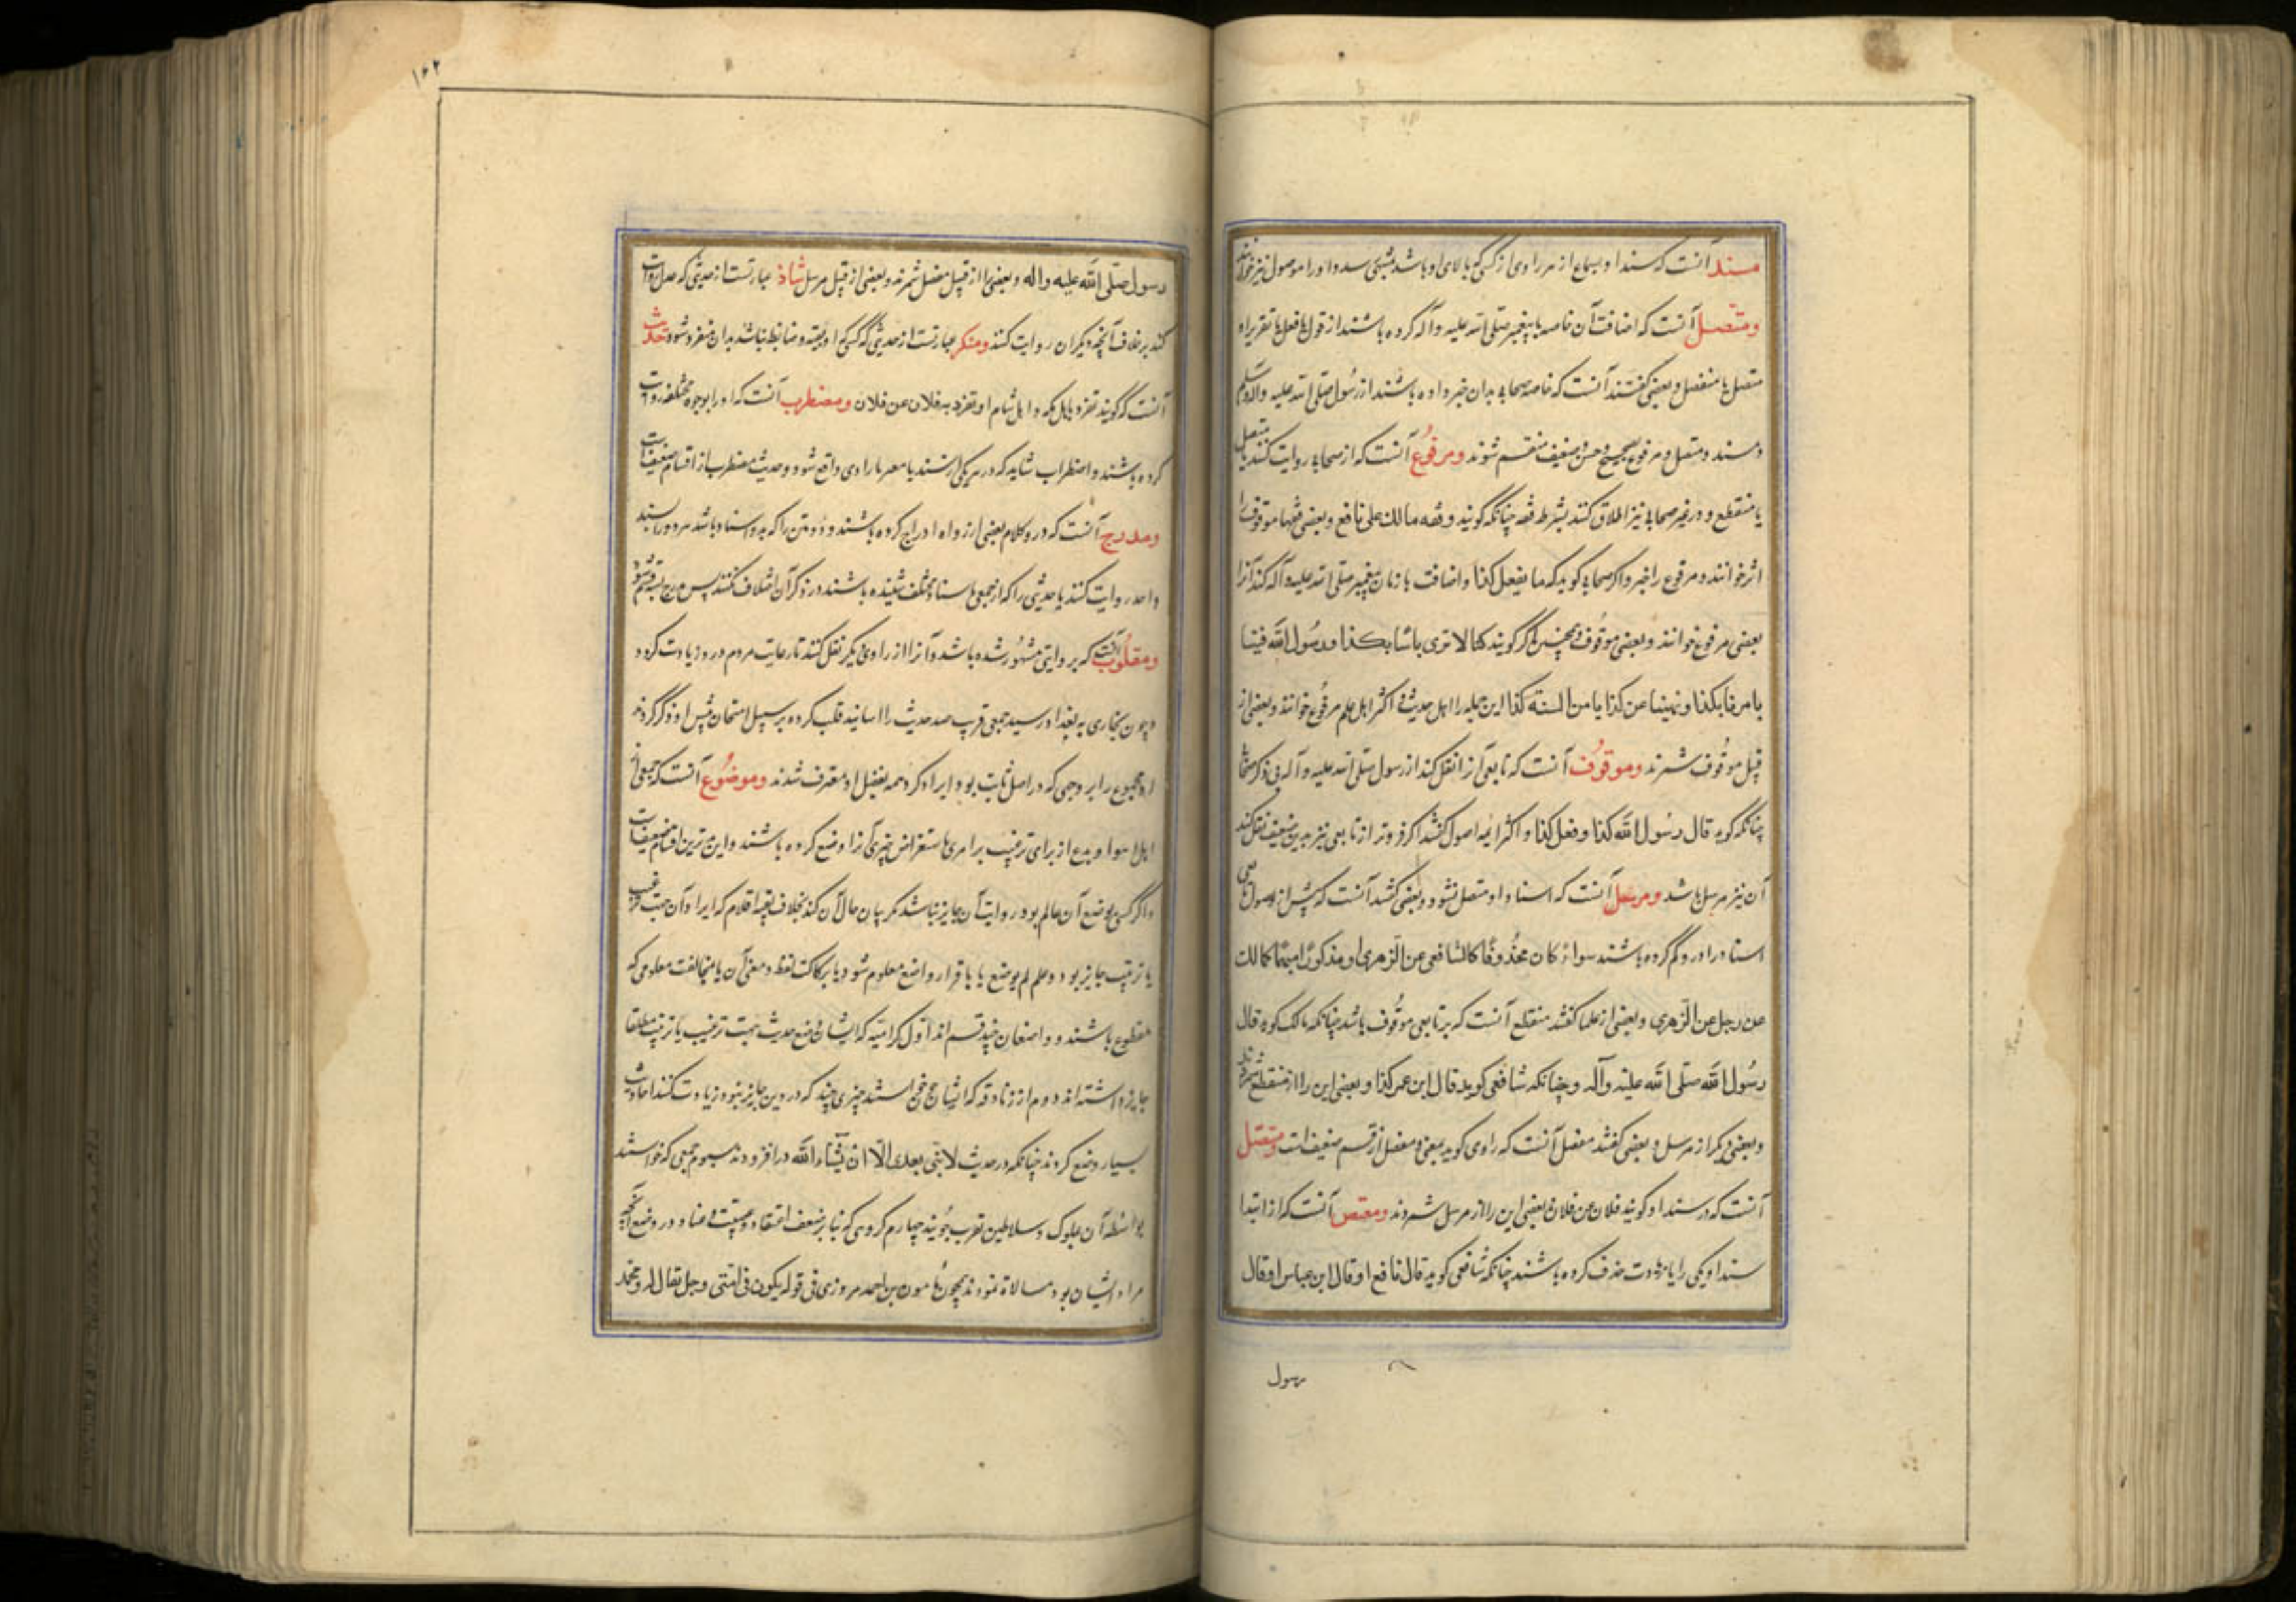 مسند آنست که سند او بسماع از هر راوی از کسی که بالای او باشد منتهی شود و او را موصول نیز خوانند
ومتصل آنست که اضافت آن خاصه با پیغمبر صلی الله علیه وآله کرده باشند از قول یا فعل یا تقریر او
متصل یا منفصل و بعضی گفتند آنست که خاصه صحابه بدان خبر داده باشند از رسول صلی الله علیه وآله وسلم
ومسند ومتصل ومرفوع بصحیح وحسن وضعیف منقسم شوند ومرفوع آنست که از صحابه روایت کنند متصل یا
یا منقطع و در غیر صحابه نیز اطلاق کنند بشرط قصه چنانکه گویند وقفه مالک علی نافع و بعضی فقها موقوف را
اثر خوانند ومرفوع را خبر واگر صحابه گوید که ما یفعل کذا واضافت با زمان پیغمبر صلی الله علیه وآله کند آنرا
بعضی مرفوع خوانند و بعضی موقوف وهمچنین اگر گویند کما لا نری باسا بکذا ورسول الله فینا
یا امرنا بکذا ونهینا عن کذا یا من السنة کذا این جمله را اهل حدیث و اکثر اهل علم مرفوع خوانند و بعضی از
قبیل موقوف شمرند وموقوف آنست که تابعی آنرا نقل کند از رسول صلی الله علیه وآله بی ذکر صحابی
چنانکه گوید قال رسول الله کذا وفعل کذا واکثر ائمه اصول گفتند اگر فروتر از تابعی نیز بدین صیغت نقل کند
آن نیز مرسل باشد ومرسل آنست که اسناد او متصل نشود و بعضی گفتند آنست که پیش از وصول
استاد را در و گم کرده باشند سواء کان محذوفا کالشافعی عن الزهری او مذکورا مبهما کمالک
عن رجل عن الزهری و بعضی از علما گفتند منقطع آنست که بر تابعی موقوف باشد چنانکه مالک گوید قال
رسول الله صلی الله علیه وآله وچنانکه شافعی گوید قال ابن عمر کذا و بعضی این را از منقطع شمرند
و بعضی دیگر از مرسل و بعضی گفتند معضل آنست که راوی گوید بلغنی ومعضل از قسم ضعیف است ومتصل
آنست که در سند او گویند فلان عن فلان بعضی این را از مرسل شمرند ومقتص آنست که از ابتدا
سند او یکی را یا زیادت حذف کرده باشند چنانکه شافعی گوید قال نافع او قال ابن عباس او قال
رسول
۱۶۲
رسول صلی الله علیه واله و بعضی را از قبیل معضل شمرند و بعضی از قبیل مرسل شاذ عبارتست از حدیثی که اصل روایت
کند بر خلاف آنچه دیگران روایت کنند ومنکر عبارتست از حدیثی که کسی که او ثقه و ضابط نباشد بدان منفرد شود
آنست که گویند تفرد به اهل مکه و اهل شام او تفرد به فلان عن فلان ومضطرب آنست که او را بوجوه مختلفه روایت
کرده باشند و اضطراب شاید که در هر یکی از سند یا راوی واقع شود و حدیث مضطرب از اقسام ضعیفست
ومدرج آنست که در و کلام بعضی از رواه ادراج کرده باشند و دو متن را که بدو اسناد باشد هر دو را بسند
واحد روایت کنند یا حدیثی را که از جمعی باسناد مختلف شنیده باشند در ذکر آن اختلاف نکنند پس مدرج سه قسم شود
ومقلوب آنست که بروایتی مشهور شده باشد و آنرا از راوی دیگر نقل کنند تا رغایت مردم در و زیادت گردد
وچون بخاری به بغداد رسید جمعی قرب صد حدیث را اسانید قلب کرده بر سبیل امتحان پیش او ذکر کردند
او مجموع را بر وجهی که در اصل ثابت بود ایراد کرد همه بفضل او معترف شدند وموضوع آنست که جمعی از
اهل اهوا و بدع از برای ترغیب بر امری یا استغراض چیزی آنرا وضع کرده باشند و این بدترین اقسام ضعیفات
و اگر کسی بوضع آن عالم بود روایت آن جایز نباشد مگر بیان حال آن کند بخلاف بقیه اقسام که ایراد آن جهت ترغیب
یا ترهیب جایز بود و علم بوضع یا باقرار واضع معلوم شود یا برکاکت لفظ و معنی آن یا مخالفت معلومی که
مقطوع باشند و واضعان چند قسم اند اول کرامیه که ایشان وضع حدیث جهت ترغیب یا ترهیب مطلقا
جایز داشته اند دوم از زنادقه که ایشان خواستند چیزی چند که در دین جایز نبود زیادت کنند احادیث
بسیار وضع کردند چنانکه در حدیث لا نبی بعدی الا ان یشاء الله در افزودند سیوم جمعی که خواستند
بواسطه آن بملوک وسلاطین تقرب جویند چهارم گروهی که بنابر ضعف اعتقاد وعصبیت وعناد در وضع آنچه
مراد ایشان بود مبالاة ننمودند همچون مامون بن احمد مروزی فی قوله یکون فی امتی رجل یقال له محمد